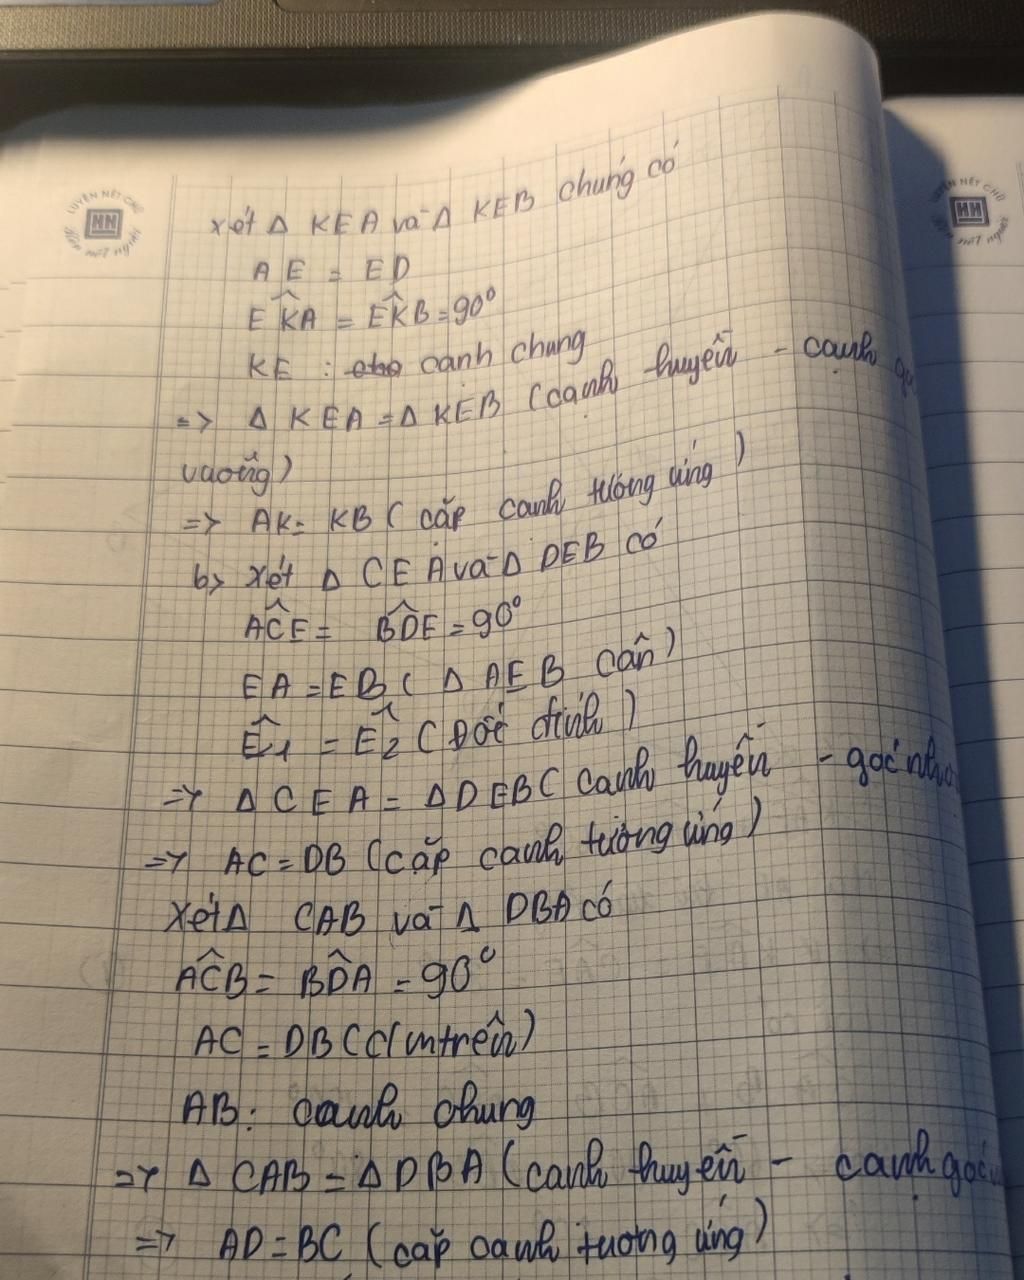 LUYỆN NÉT CHỮ
HN
xét Δ KEA và Δ KEB chung có
AE = ED
EKA = EKB = 90°
KE : canh chung
=> Δ KEA = Δ KEB (canh huyền - canh gó
vuông)
=> AK = KB (cặp canh tương ứng)
b> xét Δ CEA và Δ DEB có
ACE = BDE = 90°
EA = EB (Δ AEB cân)
E1 = E2 (Đối đỉnh)
=> Δ CEA = Δ DEB (canh huyền - góc nhọ
=> AC = DB (cặp canh tương ứng)
Xét Δ CAB và Δ DBA có
ACB = BDA = 90°
AC = DB (c/m trên)
AB: canh chung
=> Δ CAB = Δ DBA (canh huyền - canh góc
=> AD = BC (cặp canh tương ứng)